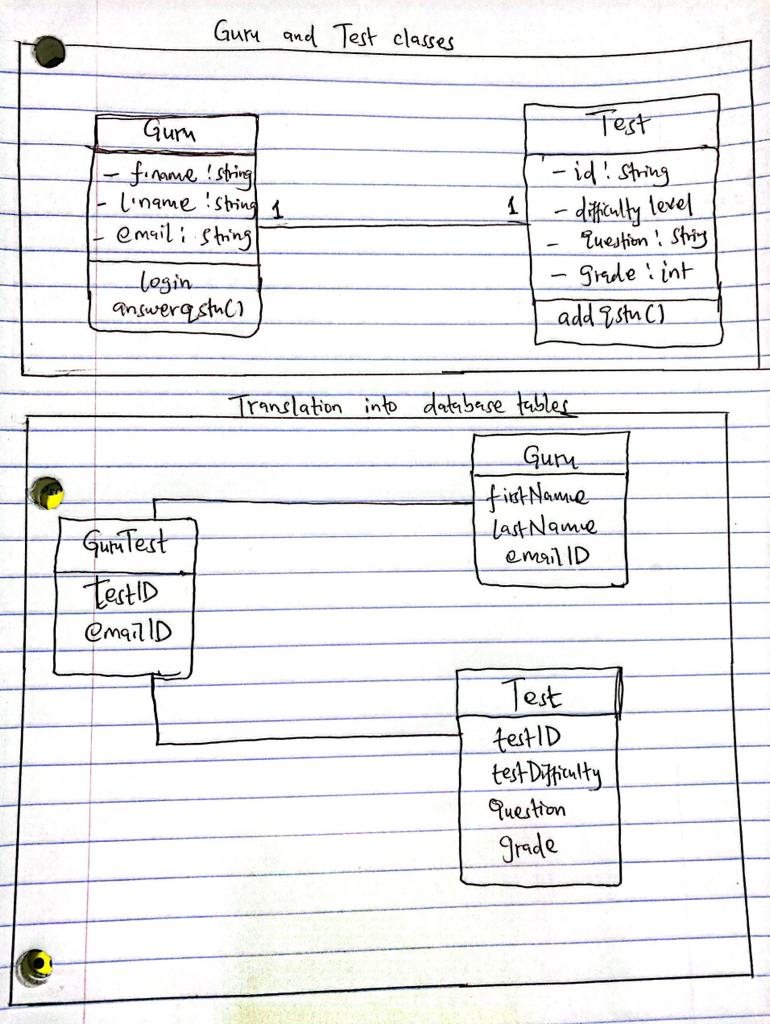 Guru and Test classes
Guru
- f.name : string
- l.name : string
- email : string
login
answerqstn()
1
1
Test
- id : string
- difficulty level
- question : string
- grade : int
addqstn()
Translation into database tables
Guru
firstName
lastName
emailID
GuruTest
testID
emailID
Test
testID
testDifficulty
question
grade